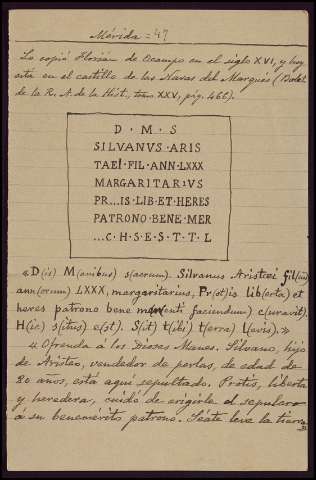 Mérida = 47
Lo copió Florián de Ocampo en el siglo XVI, y hoy
está en el castillo de las Navas del Marqués (Bolet.
de la R. A. de la Hist., tomo XXV, pág. 466).
D · M · S
SILVANVS · ARIS
TAEI · FIL · ANN · LXXX
MARGARITARIVS
PR...IS · LIB · ET · HERES
PATRONO · BENE · MER
...C · H · S · E · S · T · T · L
«D(is) M(anibus) s(acrum). Silvanus Aristaei fil(ius)
ann(orum) LXXX, margaritarius, Pr(ot)is lib(erta) et
heres patrono bene merenti faciundum) c(uravit).
H(ic) s(itus) e(st). S(it) t(ibi) t(erra) l(evis).»
«Ofrenda á los Dioses Manes. Silvano, hijo
de Aristeo, vendedor de perlas, de edad de
80 años, está aquí sepultado. Protis, liberta
y heredera, cuidó de erigirle el sepulcro
á su benemérito patrono. Séate leve la tierra.»